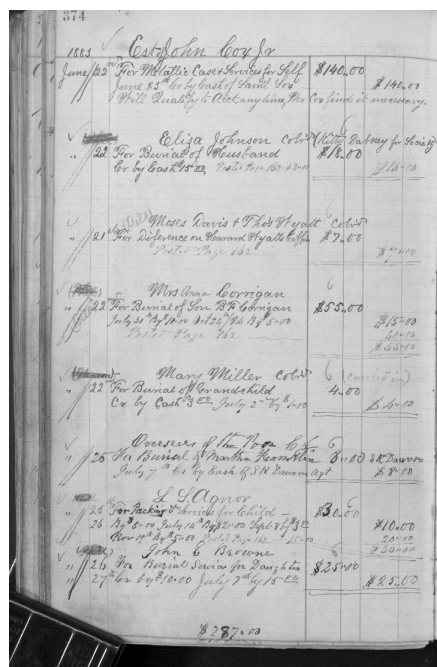 374
1883. Est John Cox Jr
June 22 For Metallic Case & Services for Self $140.00
June 25th Cr by Cash of Saml Cox $140.00
Will Qualify & Act any time, Mr Cox finds it necessary.
Eliza Johnson Cold (Kitty Dabney for Society
" 22 For Burial of Husband $18.00
Cr by Cash 15.00 Posted Page 162 $18.00
Moses Davis & Thos Wyatt Cold
" 21 For Diference on Wyatt Coffin $7.00
Posted Page 162
Mrs Anna Corrigan
" 22 For Burial of Son B F Corrigan $55.00
July 30th By 10.00 Oct 24th/84 By 5.00 $15.00
Posted Page 162 40.00
$55.00
Mary Miller Cold (carried in)
" 22 For Burial of Grandchild 4.00
Cr by Cash 3.00 July 2nd by 1.00 $4.00
Overseers of the Poor
" 25 For Burial of Martha 8.00 S K Dawson
July 7th Cr by Cash of S K Dawson Agt $8.00
L L Agnor
" 25 For Packing & Services for Child $30.00
26 By 5.00 July 14th By 2.00 Sept 8th $3.00 $10.00
Nov 19th By 5.00 Posted Page 162 15.00 20.00
$30.00
John E Browne
" 26 For Burial Service for Daughter $25.00
27th Cr by 10.00 July 7th by 15.00 $25.00
$287.00